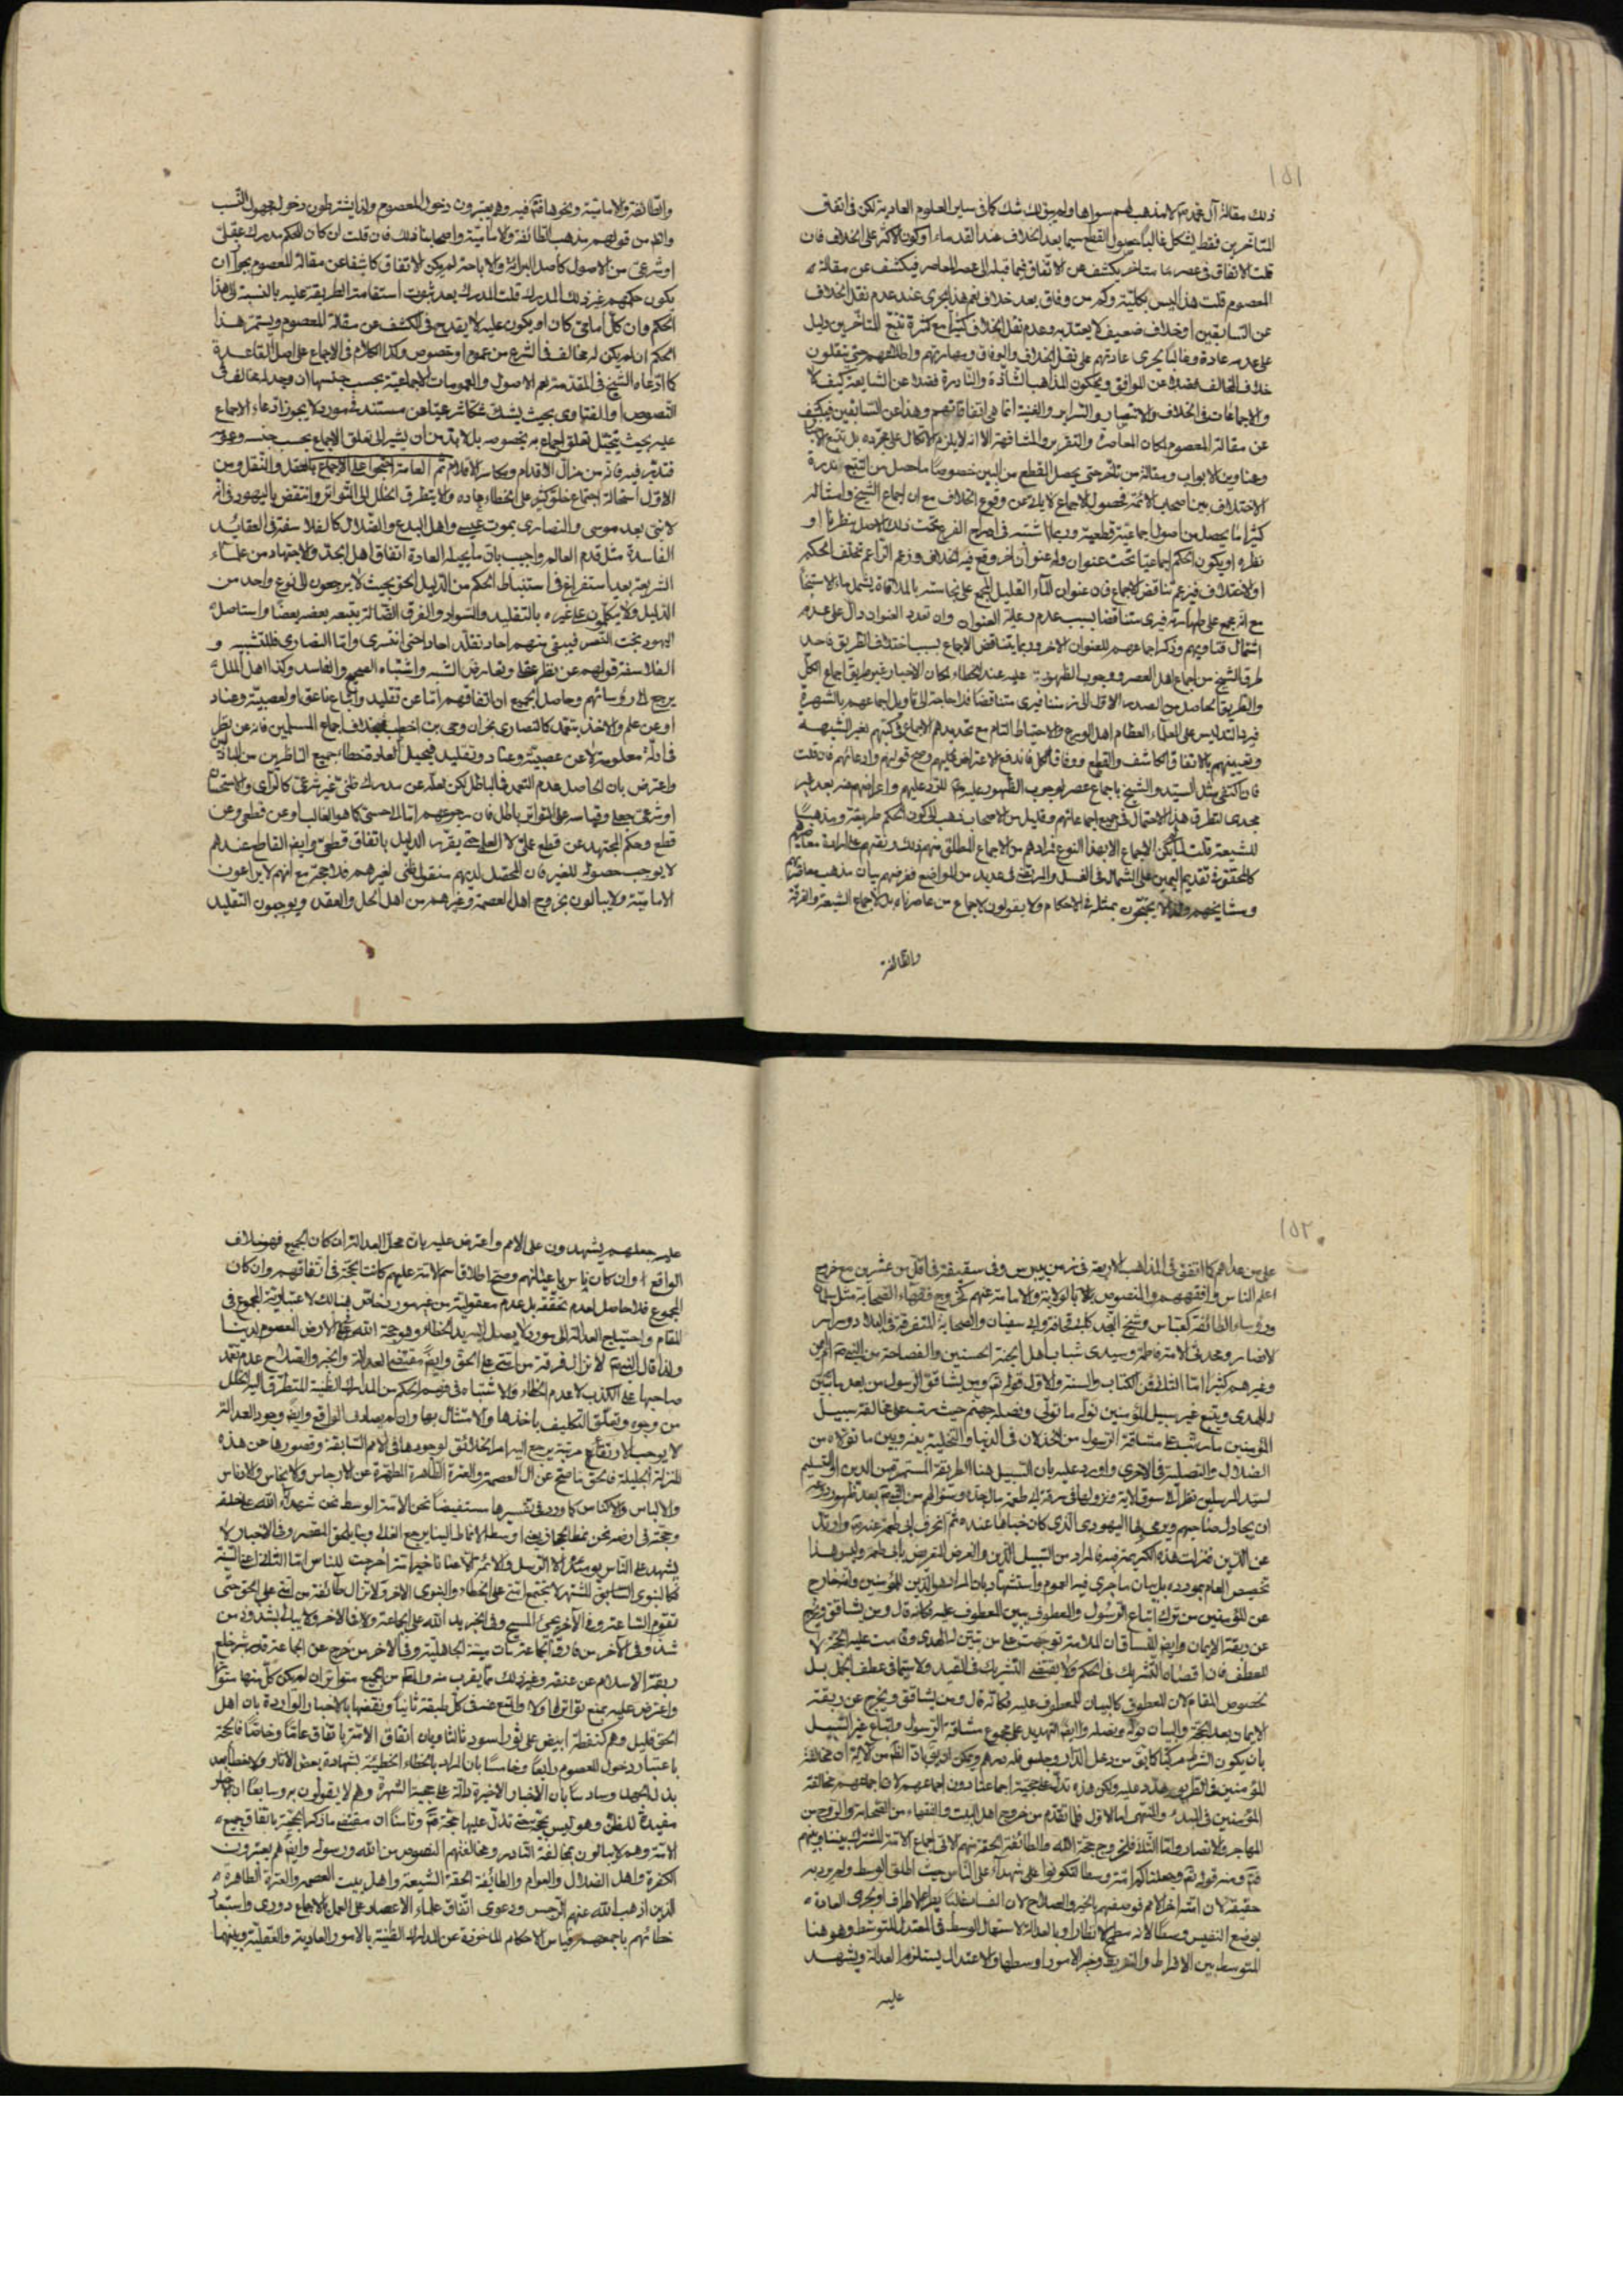 ١٥١
ذلك مقالة آل محمد لا مذهب لهم سواها ولم يبق لك شك كما في ساير العلوم العادية لكن في اتفاق
المتأخرين فقط يشكل غالبا حصول القطع سيما بعد الخلاف عند القدماء او كون الاكثر على الخلاف فان
قلت الاتفاق في عصر ما متأخر يكشف عن الاتفاق فيما قبله الى عصر الحاضر فيكشف عن مقالة
المعصوم قلت هذا ليس بكلية وكم من وفاق بعد خلاف نعم هذا يجرى عند عدم نقل الخلاف
عن السابقين او خلاف ضعيف لا يعتد به وعدم نقل الخلاف كثيرا مع كثرة تتبع المتأخرين دليل
على عدمه عادة وغالبا يجرى عادتهم على نقل الخلاف والوفاق ومهارتهم واطلاعهم حتى ينقلون
خلاف المخالف فضلا عن الموافق ويحكون المذاهب الشاذة والنادرة فضلا عن الشايعة كيف لا
والاجماعات في الخلاف والانتصار والسرائر والغنية انما هي اتفاقاتهم وهذا عن السابقين فيكشف
عن مقالة المعصوم لمكان المعاصرة والتقرير والمشافهة الا انه لا يلزم الاتكال على مجرده بل تتبع الاخبار
وعناوين الابواب ومقالة من تأخر حتى يحصل القطع من البين خصوصا ما حصل من التتبع ندرة
الاختلاف بين اصحاب الائمة فحصول الاجماع لا يأبى عن وقوع الخلاف مع ان اجماع الشيخ وامثاله
كثيرا ما يحصل من اصول اجماعية قطعية وربما اشتبه في ادراج الفرع تحت ذلك الاصل بنظرنا او
نظره او يكون الحكم اجماعيا تحت عنوان وله عنوان آخر وقع فيه الخلاف وزعم الزاعم تخلف الحكم
او الاختلاف فيزعم تناقض الاجماع فان عنوان الماء القليل المجمع على نجاسته بالملاقاة يشمل ماء الاستنجاء
مع انه مجمع على طهارته فيرى متناقضا بسبب عدم رعاية العنوان وان تعدد العنوان دال على عدم
اشتمال فتاويهم وذكر اجماعهم للعنوان الآخر وربما يتناقض الاجماع بسبب اختلاف الطريق فاحد
طرق الشيخ من اجماع اهل العصر ووجوب الظهور عليه عند الخطاء لمكان الاخبار غير طريق اجماع الكل
والطريق الحاصل من الصدر الاول الى زمننا فيرى متناقضا فلا حاجة الى تاويل اجماعهم بالشهرة
فيه بالتدليس على العلماء العظام اهل الورع والاحتياط التام مع تحديدهم الاجماع في كتبهم بغير الشبهة
وتعيينهم بالاتفاق الكاشف والقطع ووفاق الكل فاندفع الاعتراض عليهم وصح قولهم وادعائهم فان قلت
فان اكتفى مثل السيد والشيخ باجماع عصر لوجوب الظهور عليه للرد عليهم واعراضهم عنه بعد لم
يجدى لتطرق هذا الاحتمال في جميع اجماعاتهم وقليل من الاصحاب ذهب الى كون الحكم طريقة ومذهبا
للشيعة قلت لما يكن الاجماع الا بهذا النوع فمرادهم من الاجماع المطلق منهم ذلك ونقلهم على ارادة معاصريهم
كالمحقق وتقديم اليمين على الشمال في الغسل والمرتضى في عديد من المواضع فغرضهم بيان مذهب معاصريهم
ومشايخهم ولذا لا يحتجون بمثله في الاحكام ولا يقولون لاجماع من عاصرناه بل لاجماع الشيعة والفرقة
والطائفة
والطائفة والامامية ونحوها فتدبر فيه وهم يعتبرون دخول المعصوم ولذا يشترطون دخول مجهول النسب
والظ من قولهم مذهب الطائفة والامامية واصحابنا ذلك فان قلت ان كان للحكم مدرك عقلى
او شرعى من الاصول كاصل البرائة والاباحة لم يكن الاتفاق كاشفا عن مقالة المعصوم بجواز ان
يكون حكمهم غير ذلك المدرك قلت المدرك بعد ثبوت استقامة الطريقة عليه بالنسبة الى هذا
الحكم وان كل امامى كان او يكون عليه لا يقدح في الكشف عن مقالة المعصوم ويستمر هذا
الحكم ان لم يكن له مخالف في الشرع من عموم او خصوص وكذا الكلام في الاجماع على اصل القاعدة
كما ادعاه الشيخ في المقدمة نعم الاصول والعمومات الاجماعية بحسب جنسها ان وجد له مخالف في
النصوص او الفتاوى بحيث يشك شكا شرعيا عن مستنده في مورد لا يجوز ادعاء الاجماع
عليه بحيث يتخيل تعلق اجماع به بخصوصه بل لا بد من ان يشير الى تعلق الاجماع بحسب جنسه وعمومه
فتدبر فيه فانه من مزال الاقدام ومكاسر الاقلام ثم العامة احتجوا على الاجماع بالعقل والنقل ومن
الاول استحالة اجتماع خلق كثير على الخطاء عادة ولا يتطرق الخلل الى التواتر وانتقض باليهود في انه
لا نبى بعد موسى والنصارى بموت عيسى واهل البدع والضلال كالفلاسفة في العقايد
الفاسدة مثل قدم العالم واجيب بان ما يحيله العادة اتفاق اهل الجد والاجتهاد من علماء
الشريعة بعد استفراغ في استنباط الحكم من الدليل الحق بحيث لا يرجعون الى نوع واحد من
الدليل ولا يتكلمون على غيره بالتقليد والسواد والفرق الضالة يتبع بعضهم بعضا واستاصل
اليهود بخت النصر فيبقى منهم احاد نقلة احاد احتى انفسرى واما النصارى فللتشبيه و
الفلاسفة قولهم عن نظر عقلى وتعارض الشبه واشتباه الصحيح والفاسد وكذا اهل الملل
يرجع الى رؤسائهم وحاصل الجميع ان اتفاقهم اما عن تقليد واتباع ناعق او لعصبية وعناد
او عن علم والاخذ بتعمد كالنصارى نجران وحيى بن اخطب بخلاف اجماع المسلمين فانه عن نظر
في ادلة معلومة لا عن عصبية وعناد وتقليد فيحيل العادة خطاء جميع الناظرين من المبادى
واعترض بان الحاصل عدم التعمد في الباطل لكن لعله عن مدرك ظنى غير شرعى كالرأى والاستحسان
او شرعى جعلى وقياسه على التواتر باطل فان رجوعهم اما الى الحسى كما هو الغالب او عن قطعى وعن
قطع وحكم المجتهد عن قطع عملى لا العلم حتى يقرر الدليل باتفاق قطعى وايض القاطع عندهم
لا يوجب حصوله للغير فان المحصل لديهم منقول ظنى لغيرهم فلا حجة مع انهم لا يراعون
الامامية ولا يبالون بخروج اهل العصمة وغيرهم من اهل الحل والعقد ويوجبون التقليد
١٥٢
على من عداهم كما اتفق في المذاهب الاربعة في زمن بيبرس وفي سقيفة في اقل من عشرين مع خروج
اعلم الناس وافقههم والمنصوص بالولاية والامامة عنهم كخروج فقهاء الصحابة مثل سلمان
ورؤساء الطائفة كعباس وشيخ النجد كابى قحافة وابى سفيان والصحابة المتفرقة في البلاد وسراير
الانصار ومحدثى الامة فاطمة وسيدى شباب اهل الجنة الحسنين والفصاحة من
وغيرهم كثيرا اما الثانى فمن الكتاب والسنة والاول قوله تع ومن يشاقق الرسول من بعد ما تبين
له الهدى ويتبع غير سبيل المؤمنين نوله ما تولى ونصله جهنم حيث رتب على مخالفة سبيل
المؤمنين ما رتب على مشاقة الرسول من الخذلان في الدنيا والتخلية بينه وبين ما تولاه من
الضلال والتصلية في الاخرى واورد عليه بان السبيل هنا الطريقة المستمرة من الدين والتسليم
لسيد المرسلين نظرا الى سوق الآية ونزولها في سرقة ابى طعمة سؤالهم من النبى بعد ظهوره
ان يجادل صاحبهم ويرمى بها اليهودى الذى كان خباها عنده ثم انحرف ابى طعمة عنه وارتد
عن الدين فنزلت هذه الكريمة فصرف المراد من السبيل الدين والغرض التعريض بابى طعمة وليس هذا
تخصيص العام بمورده بل بيان ما جرى فيه العموم واستشهاد بان المراد هو الدين للمؤمنين والخارج
عن المؤمنين من ترك اتباع الرسول والمعطوف يبين المعطوف عليه فكانه قال ومن يشاقق ويخرج
عن ربقة الايمان وايض للفساق ان الملامة توجهت على من تبين له الهدى وقامت عليه الحجة لا
للعطف فان اقصاه التشريك في الحكم ولا يقتضى التشريك في القيد ولا سيما في عطف الجمل بل
بخصوص المقام لان المعطوف كالبيان للمعطوف عليه فكانه قال ومن يشاقق ويخرج عن ربقة
الايمان بعد الحجة والبيان نوله ونصله وايض التهديد على مجموع مشاقة الرسول واتباع غير السبيل
بان يكون الشرط مركبا كما يق من دخل الدار وجلس فله درهم ويمكن ان يق بان الظ من الآية ان مخالفة
المؤمنين في الطريق هدد عليه ولكن هذه تدل على حجية اجماعنا دون اجماعهم لان اجماعهم مخالفة
المؤمنين في المبدء والمنتهى اما الاول فلما تقدم من خروج اهل البيت والفقهاء من الصحابة والزوج من
المهاجر والانصار واما الثانى فلخروج حجة الله والطائفة المحقة منهم لا في اجماع الامة المشترك بيننا وبينهم
فتم ومنه قوله تع وجعلناكم امة وسطا لتكونوا على شهداء على الناس حيث اطلق الوسط ولم يرد به
حقيقة لان امته اخر الامم فوصفهم بالخير والصلاح لان الفساد غالبا يطرء الاطراف ويجرى العادة
بوضع النفيس وسطا لانه سطح الانظار او بالعدالة لاستعمال الوسط في المعتدل المتوسط وهو هنا
المتوسط بين الافراط والتفريط وخير الامور اوسطها والاعتدال يستلزم العدالة ويشهد
عليه
عليه جعلهم يشهدون على الامم واعترض عليه بان محل العدالة ان كان الجميع فهو خلاف
الواقع وان كان ناس باعيانهم وصح اطلاق اسم الامة عليهم كانت الحجة في اتفاقهم وان كان
المجموع فلا حاصل لعدم تحققه بل عدم معقوليته من غير مورد خاص هنالك لاعتبارية المجموع في
المقام واحتياج العدالة الى مورد لا يصل اليه يد الخطاء وهو حجة الله في الارض المعصوم لدينا
ولذا قال النبى لا تزال فرقة من امتى على الحق وايض مقتضى العدالة والخير والصلاح عدم تعمد
صاحبها على الكذب لا عدم الخطاء والاشتباه في فهم الحكم من المدارك الظنية المتطرق اليه الخلل
من وجوه وتعلق التكليف باخذها والامتثال بها وان لم يصادف الواقع وايض وجود العدالة
لا يوجب الارتفاع مرتبة يرجع اليه امر الخلائق لوجودها في الامم السابقة وقصورها عن هذه
المنزلة الجليلة فالحق ما صح عن آل العصمة والعترة الطاهرة المطهرة عن الارجاس والانجاس والادناس
والالباس والاكناس كما ورد في تفسيرها مستفيضا نحن الامة الوسط نحن شهداء الله على خلقه
وحجته في ارضه نحن نمط الحجاز يعنى اوسط الانماط الينا يرجع الغالى وبنا يلحق المقصر وفي الاخبار لا
يشهد على الناس يومئذ الا الرسل والائمة لاعنا ناخيرامة اخرجت للناس اما الثانى اعنى السنة
فكالنبوى السابق المشتهر لا يجتمع امتى على الخطاء والنبوى الآخر ولا تزال طائفة من امتى على الحق حتى
تقوم الساعة وفي الآخر يجئ المسيح وفي الخبر يد الله على الجماعة وفي الآخر ولا يبالى بشذوذ من
شذ وفي الآخر من فارق الجماعة مات ميتة الجاهلية وفي الآخر من خرج عن الجماعة قدر شبر خلع
ربقة الاسلام عن عنقه وغير ذلك مما يقرب منه والظ من الجميع متواتر ان لم يكن كل منها متواترا
واعترض عليه بمنع تواترها ولا قاطع بضعف كل طبقة ثانيا ونقضها بالاخبار الواردة بان اهل
الحق قليل وهم كنقطة ابيض على ثور اسود ثالثا وبان اتفاق الامة باتفاق عامنا وخاصنا فالحجة
باعتبار دخول المعصوم رابعا وخامسا بان المراد بالخطاء الخطيئة بشهادة بعض الآثار ولا خطاء بعد
بذل الجهد وسادسا بان الاخبار الاخيرة دالة على حجية الشهرة وهم لا يقولون به وسابعا ان الاخبار
مفيدة للظن وهو ليس بحجة حتى تدل عليها حجة فتم وثامنا ان مقتضى ما ذكر الحجية باتفاق جميع
الامة وهم لا يبالون بمخالفة النادر ومخالفتهم المنصوص من الله ورسوله وايض هم يعتبرون
الكفرة واهل الضلال والعوام والطائفة المحقة الشيعة واهل بيت العصمة والعترة الطاهرة
الذين اذهب الله عنهم الرجس ودعوى اتفاق علماء الاعصار على العمل بالاجماع دورى واستبعاد
خطائهم باجمعهم وقياس الاحكام الماخوذة عن المدارك الظنية بالامور العادية والعقلية وبينهما